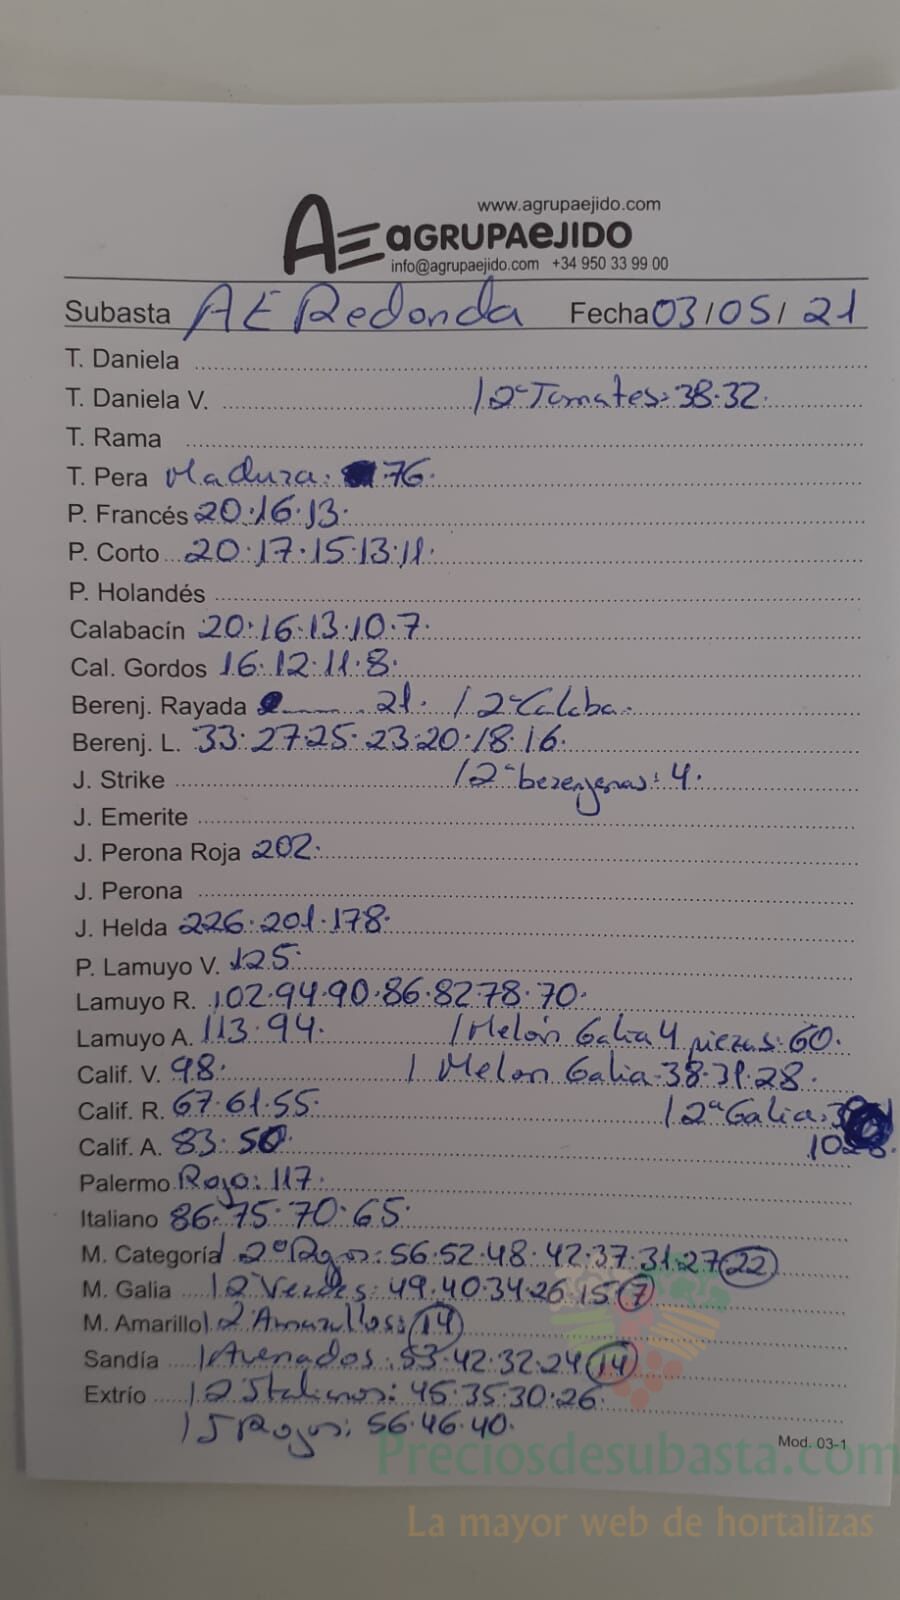 www.agrupaejido.com
AE aGRUPAeJIDO
info@agrupaejido.com +34 950 33 99 00
Subasta AE Redonda Fecha 03/05/21
T. Daniela
T. Daniela V. / 2ª Tomates: 38.32.
T. Rama
T. Pera Madura: 76.
P. Francés 20.16.13.
P. Corto 20.17.15.13.11.
P. Holandés
Calabacín 20.16.13.10.7.
Cal. Gordos 16.12.11.8.
Berenj. Rayada 21. / 2ª Calaba.
Berenj. L. 33.27.25.23.20.18.16.
J. Strike / 2ª berenjenas: 4.
J. Emerite
J. Perona Roja 202.
J. Perona
J. Helda 226.201.178.
P. Lamuyo V. 125.
Lamuyo R. 102.94.90.86.82.78.70.
Lamuyo A. 113.94. / Melón Galia 4 piezas: 60.
Calif. V. 98. / Melon Galia 38.31.28.
Calif. R. 67.61.55. / 2ª Galia:
Calif. A. 83.50.
Palermo Rojo: 117.
Italiano 86.75.70.65.
M. Categoría / 2ª Rojos: 56.52.48.42.37.31.27 22
M. Galia / 2 Verdes: 49.40.34.26.15. 7
M. Amarillo / 2 Amarillos: 14
Sandía / Avenados: 53.42.32.24 14
Extrío / 2 Italianos: 45.35.30.26.
/ 5 Rojos: 56.46.40.
Mod. 03-1
Preciosdesubasta.com
La mayor web de hortalizas